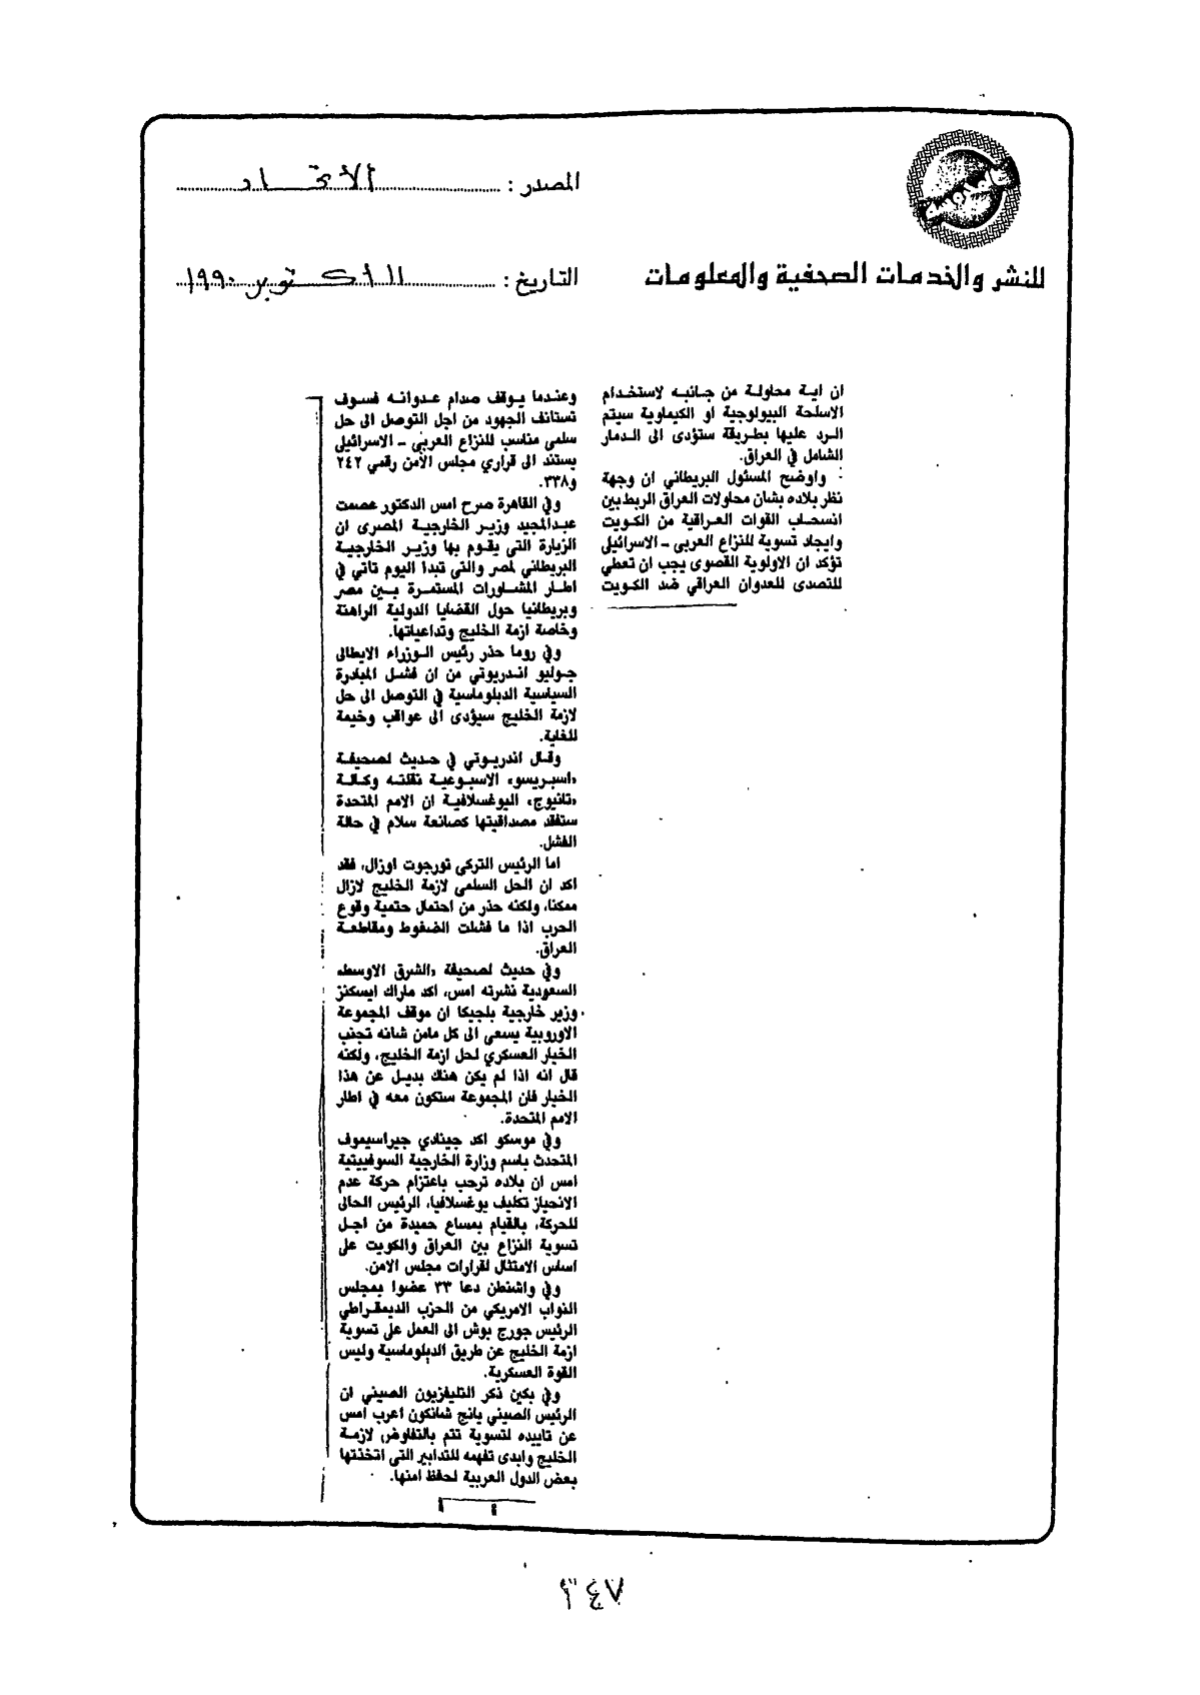 المصدر : الاتحاد
للنشر والخدمات الصحفية والمعلومات
التاريخ : ١١ اكتوبر ١٩٩٠
ان اية محاولة من جانبه لاستخدام
الاسلحة البيولوجية او الكيماوية سيتم
الرد عليها بطريقة ستؤدى الى الدمار
الشامل في العراق.
واوضح المسئول البريطاني ان وجهة
نظر بلاده بشان محاولات العراق الربط بين
انسحاب القوات العراقية من الكويت
وايجاد تسوية للنزاع العربى ـ الاسرائيلى
تؤكد ان الاولوية القصوى يجب ان تعطي
للتصدى للعدوان العراقي ضد الكويت
وعندما يوقف صدام عدوانه فسوف
تستانف الجهود من اجل التوصل الى حل
سلمى مناسب للنزاع العربى ـ الاسرائيلى
يستند الى قراري مجلس الأمن رقمي ٢٤٢
و٣٣٨.
وفي القاهرة صرح امس الدكتور عصمت
عبدالمجيد وزير الخارجية المصرى ان
الزيارة التى يقوم بها وزير الخارجية
البريطاني لمصر والتى تبدا اليوم تاتي في
اطار المشاورات المستمرة بين مصر
وبريطانيا حول القضايا الدولية الراهنة
وخاصة ازمة الخليج وتداعياتها.
وفي روما حذر رئيس الوزراء الايطالى
جوليو اندريوتي من ان فشل المبادرة
السياسية الدبلوماسية في التوصل الى حل
لازمة الخليج سيؤدى الى عواقب وخيمة
للغاية.
وقال اندريوتي في حديث لصحيفة
«اسبريسو» الاسبوعية نقلته وكالة
«تانيوج» اليوغسلافية ان الامم المتحدة
ستفقد مصداقيتها كصانعة سلام في حالة
الفشل.
اما الرئيس التركى تورجوت اوزال، فقد
اكد ان الحل السلمى لازمة الخليج لازال
ممكنا، ولكنه حذر من احتمال حتمية وقوع
الحرب اذا ما فشلت الضغوط ومقاطعة
العراق.
وفي حديث لصحيفة «الشرق الاوسط»
السعودية نشرته امس، اكد مارك ايسكنز
وزير خارجية بلجيكا ان موقف المجموعة
الاوروبية يسعى الى كل مامن شانه تجنب
الخيار العسكري لحل ازمة الخليج، ولكنه
قال انه اذا لم يكن هناك بديل عن هذا
الخيار فان المجموعة ستكون معه في اطار
الامم المتحدة.
وفي موسكو اكد جينادي جيراسيموف
المتحدث باسم وزارة الخارجية السوفييتية
امس ان بلاده ترحب باعتزام حركة عدم
الانحياز تكليف يوغسلافيا، الرئيس الحالى
للحركة، بالقيام بمساع حميدة من اجل
تسوية النزاع بين العراق والكويت على
اساس الامتثال لقرارات مجلس الامن.
وفي واشنطن دعا ٣٣ عضوا بمجلس
النواب الامريكي من الحزب الديمقراطي
الرئيس جورج بوش الى العمل على تسوية
ازمة الخليج عن طريق الدبلوماسية وليس
القوة العسكرية.
وفي بكين ذكر التليفزيون الصينى ان
الرئيس الصينى يانج شانكون اعرب امس
عن تاييده لتسوية تتم بالتفاوض لازمة
الخليج وابدى تفهمه للتدابير التى اتخذتها
بعض الدول العربية لحفظ امنها.
٣٤٧